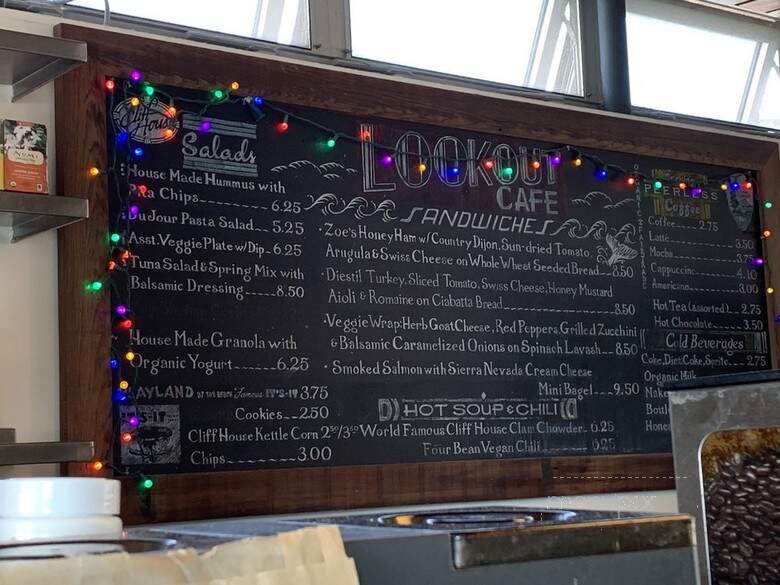 Cliff House
Salads
House Made Hummus with
Pita Chips 6.25
DuJour Pasta Salad 5.25
Asst. Veggie Plate w/Dip 6.25
Tuna Salad & Spring Mix with
Balsamic Dressing 8.50
House Made Granola with
Organic Yogurt 6.25
IT'S-IT 3.75
Cookies 2.50
Cliff House Kettle Corn 2.50/3.50
Chips 3.00
LOOKOUT
CAFE
SANDWICHES
·Zoe's Honey Ham w/ Country Dijon, Sun-dried Tomato,
Arugula & Swiss Cheese on Whole Wheat Seeded Bread 8.50
·Diestil Turkey, Sliced Tomato, Swiss Cheese, Honey Mustard
Aioli & Romaine on Ciabatta Bread 8.50
·Veggie Wrap: Herb Goat Cheese, Red Peppers, Grilled Zucchini
& Balsamic Caramelized Onions on Spinach Lavash 8.50
·Smoked Salmon with Sierra Nevada Cream Cheese
Mini Bagel 9.50
HOT SOUP & CHILI
World Famous Cliff House Clam Chowder 6.25
Four Bean Vegan Chili 6.25
PEERLESS
Coffee
Coffee 2.75
Latte 3.50
Mocha 3.75
Cappuccino 4.10
Americano 3.00
Hot Tea (assorted) 2.75
Hot Chocolate 3.50
Cold Beverages
Coke, Diet Coke, Sprite 2.75
Organic Milk